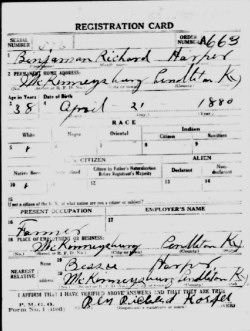 REGISTRATION CARD
SERIAL NUMBER
ORDER NUMBER A663
1 Benjaman Richard Harper
2 PERMANENT HOME ADDRESS:
McKinneysburg Pendleton Ky
Age in Years
Date of Birth
3 38
4 April 21 1880
RACE
White
Negro
Oriental
Indian
Citizen
Noncitizen
5
6
7
8
9
U. S. CITIZEN
ALIEN
Native Born
Naturalized
Citizen by Father's Naturalization Before Registrant's Majority
Declarant
Non-declarant
10
11
12
13
14
15 If not a citizen of the U. S., of what nation are you a citizen or subject?
PRESENT OCCUPATION
EMPLOYER'S NAME
16 Farmer
17
18 PLACE OF EMPLOYMENT OR BUSINESS:
McKinneysburg Pendleton Ky
NEAREST RELATIVE
Name
19
Harper
Address
20
McKinneysburg Pendleton Ky
I AFFIRM THAT I HAVE VERIFIED ABOVE ANSWERS AND THAT THEY ARE TRUE
P. M. G. O.
Form No. 1
Richard Harper